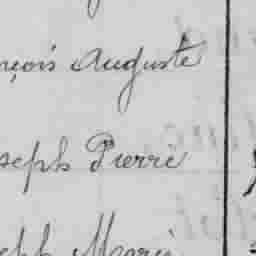 nçois Auguste
seph Pierre
eph Marie